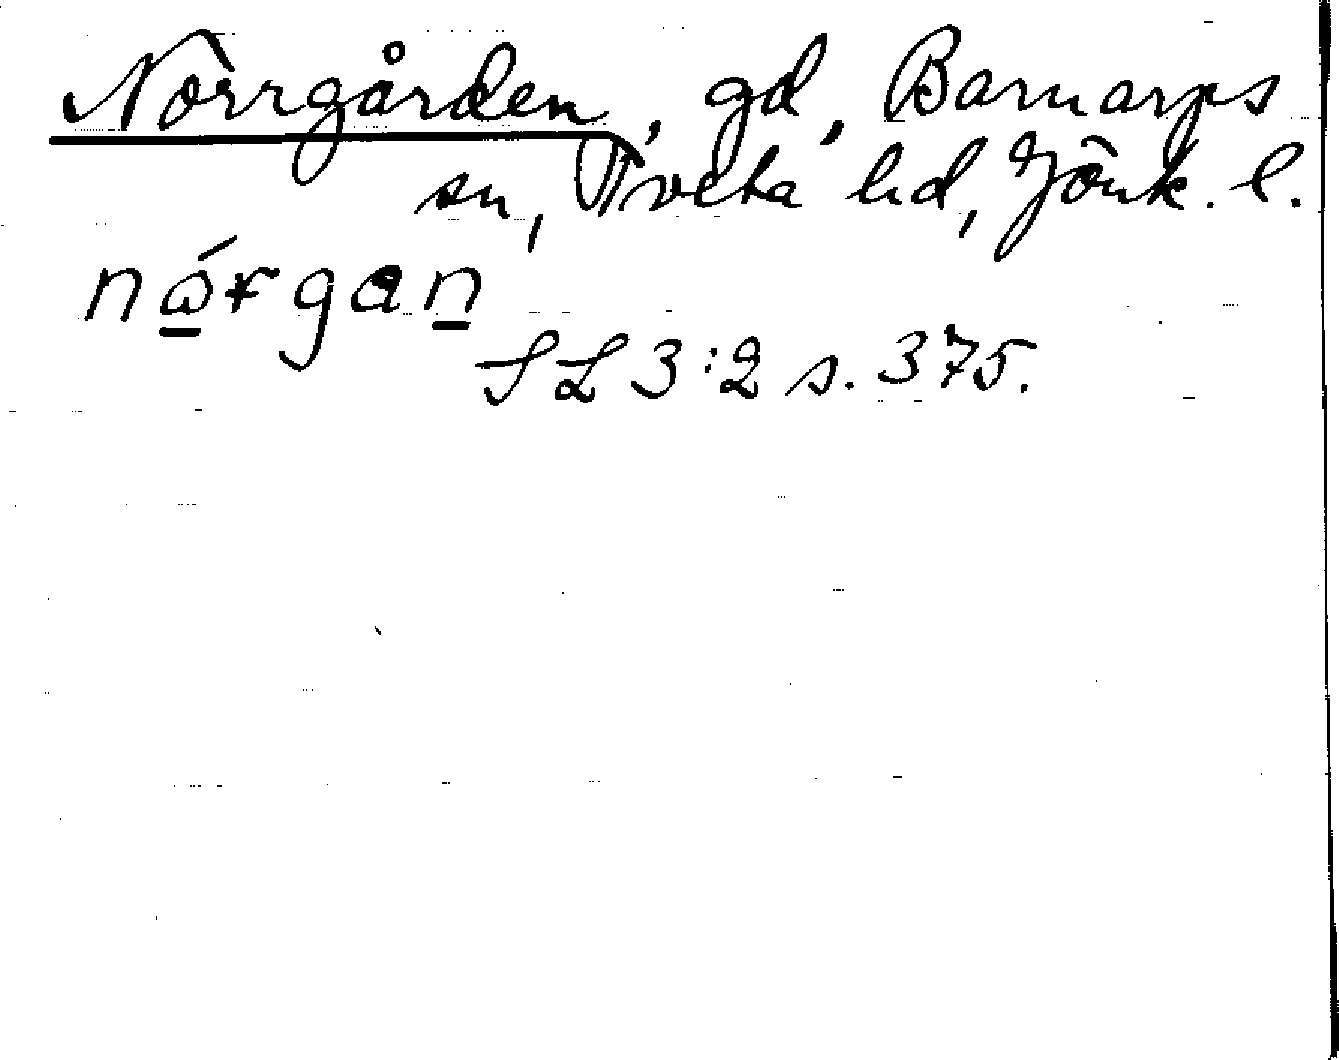 Norrgården, gd, Barnarps
sn, Tveta hd, Jönk. l.
SL 3:2 s. 375.